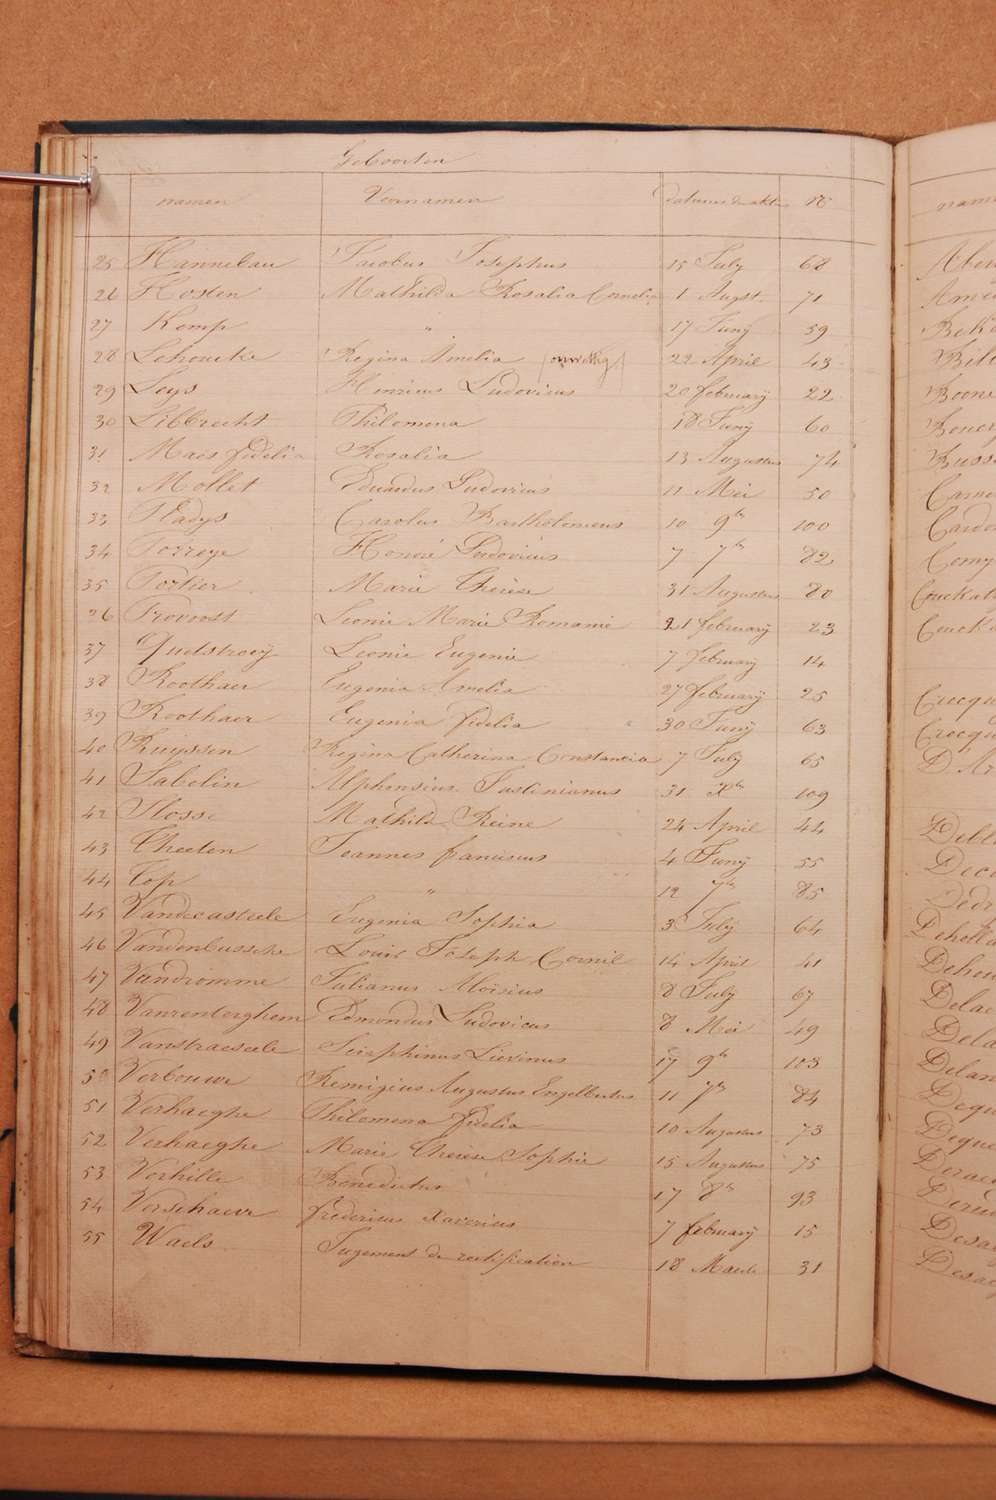 Geboorten
namen Voornamen Datums der akten N°
25 Hannebau Jacobus Josephus 15 July 68
26 Hosten Mathilda Rosalia Cornelia 1 Augst. 71
27 Kemp " 17 Juny 59
28 Lehoucke Regina Amelia (onwettig) 22 April 43
29 Leys Henricus Ludovicus 20 february 22
30 Libbrecht Philomena 18 Juny 60
31 Maes fidelia Rosalia 13 Augustus 74
32 Mollet Eduardus Ludovicus 11 Mei 50
33 Pladys Carolus Bartholomeus 10 9br 100
34 Porreye Honoré Ludovicus 7 7br 82
35 Portier Marie Therese 31 Augustus 80
36 Provoost Leonie Marie Romanie 21 february 23
37 Quetstroey Leonie Eugenie 7 february 14
38 Roothaer Eugenia Amelia 27 february 25
39 Roothaer Eugenia fidelia 30 Juny 63
40 Ruyssen Regina Catherina Constancia 7 July 65
41 Sabelin Alphonsius Justinianus 31 Xbr 109
42 Stosse Mathilde Reine 24 April 44
43 Theeten Joannes franciscus 4 Juny 55
44 Top " 12 7br 85
45 Vandecasteele Eugenia Sophia 3 July 64
46 Vandenbussche Louis Joseph Cornil 14 April 41
47 Vandromme Julianus Aloisius 8 July 67
48 Vanrenterghem Edmondus Ludovicus 8 Mei 49
49 Vanstraeseele Seraphinus Livinus 17 9br 103
50 Verbouwe Remigius Augustus Engelbertus 11 7br 84
51 Verhaeghe Philomena fidelia 10 Augustus 73
52 Verhaeghe Marie Therese Sophie 15 Augustus 75
53 Verhille Benedictus 17 8br 93
54 Verschaeve fredericus Xaverius 7 february 15
55 Waels Jugement de rectification 18 Maerte 31